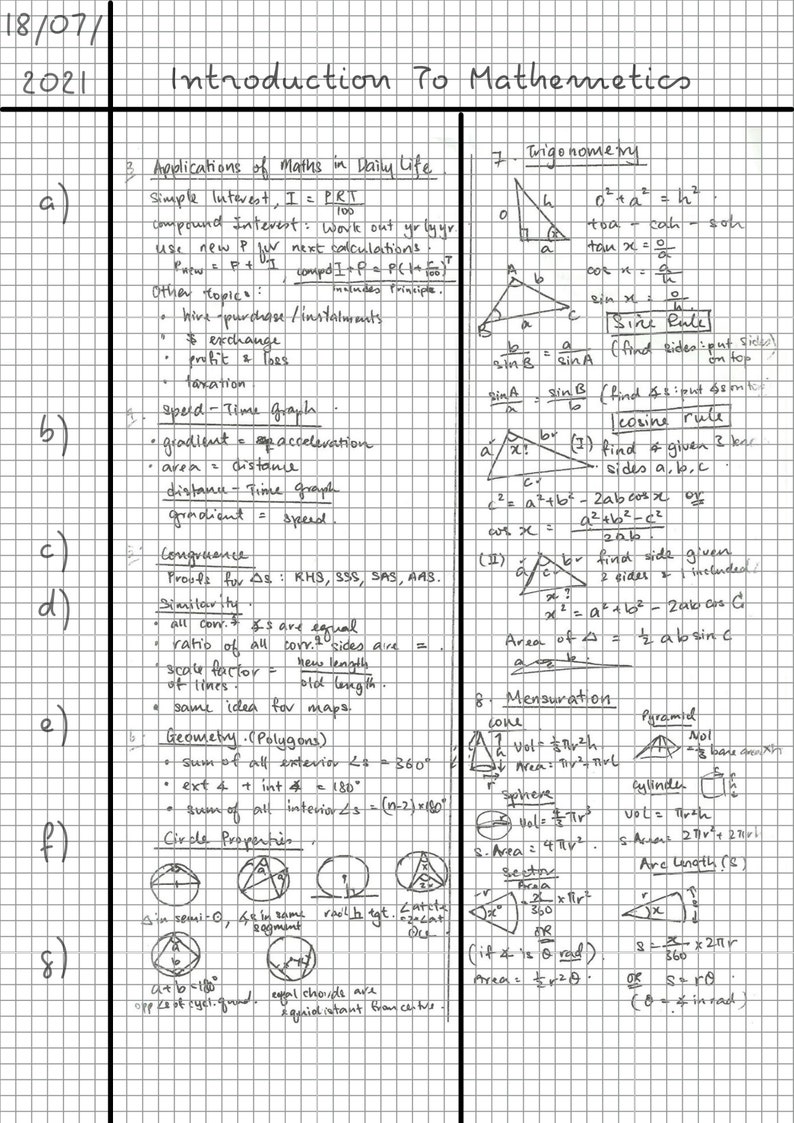 18/07/
2021
Introduction To Mathemetics
a)
b)
c)
d)
e)
f)
g)
3 Applications of Maths in Daily Life
Simple Interest, I = PRT/100
Compound Interest: Work out yrly yr.
use new P for next calculations.
Pnew = P + I, compd I+P = P(1+r/100)^T
includes Principle.
Other topics:
• hire-purchase/instalments
• $ exchange
• profit & loss
• taxation
Speed-Time graph
• gradient = acceleration
• area = distance
distance-Time graph
gradient = speed.
5. Congruence
Proofs for Δs: RHS, SSS, SAS, AAS.
Similarity.
• all corr. ∡s are equal
• ratio of all corr. sides are =.
• scale factor = new length/old length.
of lines.
• same idea for maps.
6. Geometry. (Polygons)
• sum of all exterior ∠s = 360°
• ext ∡ + int ∡ = 180°
• sum of all interior ∠s = (n-2)×180°
Circle Properties.
a a
x 2x
Δ in semi-⊙, ∡s in same segment
rad ⊥ tgt.
∠at ctr = 2×∠at ⊙ce
a b
a+b=180°
opp ∠s of cycl. quad.
equal chords are
equidistant from centre.
7. Trigonometry
o h a x
o² + a² = h²
toa - cah - soh
tan x = o/a
cos x = a/h
sin x = o/h
A b C a B
Sine Rule
b/sinB = a/sinA (find sides: put sides on top)
sinA/a = sinB/b (find ∡s: put ∡s on top
cosine rule
a x? b c
(I) find ∡ given 3
sides a, b, c.
c² = a²+b² - 2ab cos x or
cos x = a²+b²-c²/2ab
(II) a b c x? find side given
2 sides & 1 included
x² = a²+b² - 2ab cos C
Area of Δ = ½ ab sin C
a b
8. Mensuration
Cone
h r
Vol = ⅓πr²h
Area = πr²-πrl
Pyramid
Vol
= ⅓ base area×h
Sphere
Vol = 4/3 πr³
s. Area = 4πr²
cylinder
r h
Vol = πr²h
s. Area = 2πr² + 2πrh
Sector
Area
r x°
= x/360 × πr²
OR
(if ∡ is θ rad)
Area = ½r²θ.
Arc Length (S)
r x s
s = x/360 × 2πr
OR s = rθ
(θ = ∡ in rad)